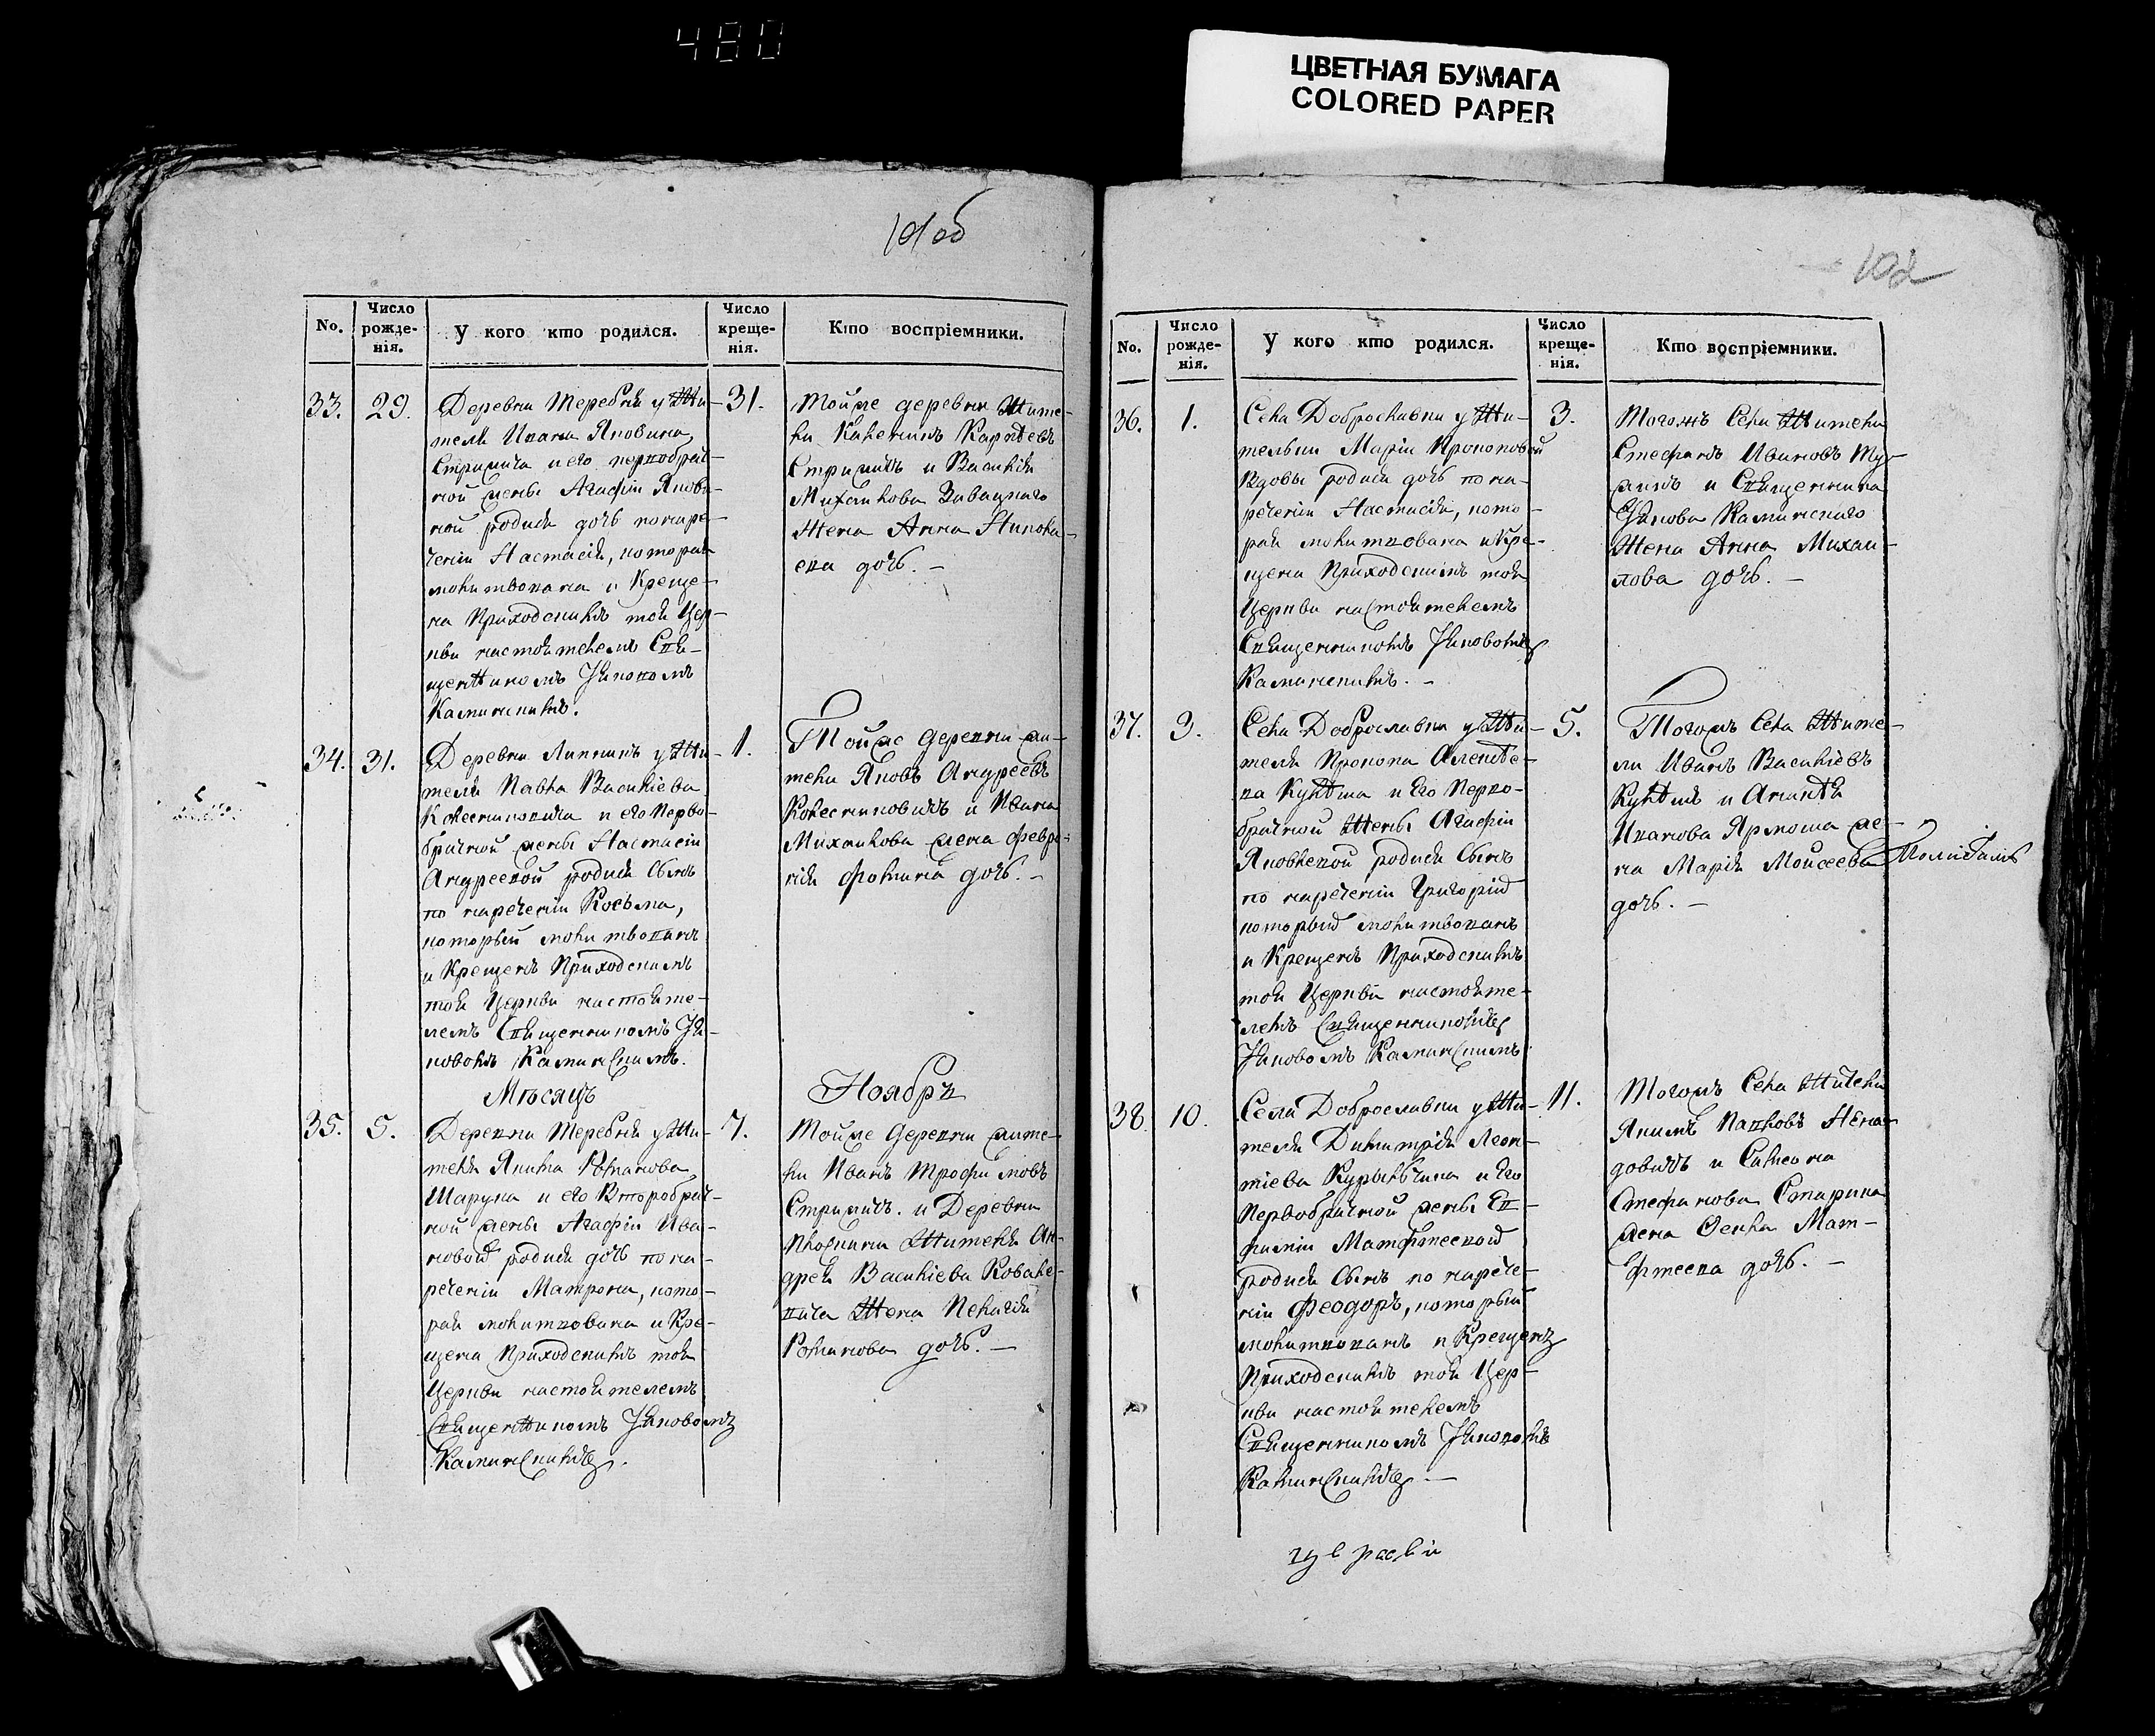 480
ЦВЕТНАЯ БУМАГА
COLORED PAPER
101 об
No.
Число рожде-нія.
У кого кто родился.
Число креще-нія.
Кто воспріемники.
33.
29.
Деревни Теребня у Жи-
теля Ивана Яковина
Стримича и его первобрач-
ной жены Агафіи Якови-
ной родися дочь по наре-
ченіи Настасія, которая
молитвована и Креще-
на Приходскимъ тоя Цер-
кви настоятелемъ Свя-
щенникомъ Іяковомъ
Каминскимъ.
31.
Тойже деревни Жите-
ли Каленикъ Карпѣевъ
Стримичъ и Василія
Михаилова
Жена Анна Никола-
ева дочь. –
34.
31.
Деревни Липникъ у Жи-
теля Павла Василіева
Колесниковича и его Перво-
брачной жены Настасіи
Андреевой родися Сынъ
по нареченіи Косьма,
который молитвованъ
и Крещенъ Приходскимъ
тоя Церкви настояте-
лемъ Священникомъ Ія-
ковомъ Каминскимъ.
1.
Тойже деревни жи-
тели Яковъ Андреевъ
Колесниковичъ и Ивана
Михаилова жена Февро-
нія Фомина дочь. –
Мѣсяцъ Ноябрь
35.
5.
Деревни Теребня у Жи-
теля Якима Романова
Шарука и его Второбрач-
ной жены Агафіи Ива-
новой родися дочь по на-
реченіи Матрона, кото-
рая молитвована и Кре-
щена Приходскимъ тоя
Церкви настоятелемъ
Священникомъ Іяковомъ
Каминскимъ.
7.
Тойже деревни жите-
ли Иванъ Трофимовъ
Стримичъ. и Деревни
Жителя Ан-
дрея Василіева Ковале-
вича Жена Пелагія
Романова дочь. –
102
No.
Число рожде-нія.
У кого кто родился.
Число креще-нія.
Кто воспріемники.
36.
1.
Села Доброславки у Жи-
тельки Маріи Прокоповой
Вдовы родися дочь по на-
реченіи Настасія, кото-
рая молитвована и Кре-
щена Приходскимъ тоя
Церкви настоятелемъ
Священникомъ Іяковомъ
Каминскимъ. –
3.
Тогожъ Села Жители
Стефанъ Ивановъ
и Священника
Іякова Каминскаго
Жена Анна Михаи-
лова дочь. –
37.
3.
Села Доброславки у Жи-
теля Прокопа Алексѣе-
ва Куптша и Его Перво-
брачной Жены Агафіи
Яковлевой родися Сынъ
по нареченіи Григорій
который молитвованъ
и Крещенъ Приходскимъ
тоя Церкви настояте-
лемъ Священникомъ
Іяковомъ Каминскимъ
5.
Тогожъ Села Жите-
ли Иванъ Василіевъ
и
Иванова Ярмоша же-
на Марія Моисеева
дочь. –
38.
10.
Села Доброславки у Жи-
теля Димитрія Леон-
тіева и Его
Первобрачной жены Ев-
фиміи Матфѣевой
родися Сынъ по нарече-
ніи Феодоръ, который
молитвованъ и Крещенъ
Приходскимъ тоя Цер-
кви настоятелемъ
Священникомъ Іяковомъ
Каминскимъ –
11.
Тогожъ Села Жители
Якимъ Павловъ Нена-
довичъ и Симеона
Стефанова Старика
жена Фекла Мат-
фѣева дочь. –